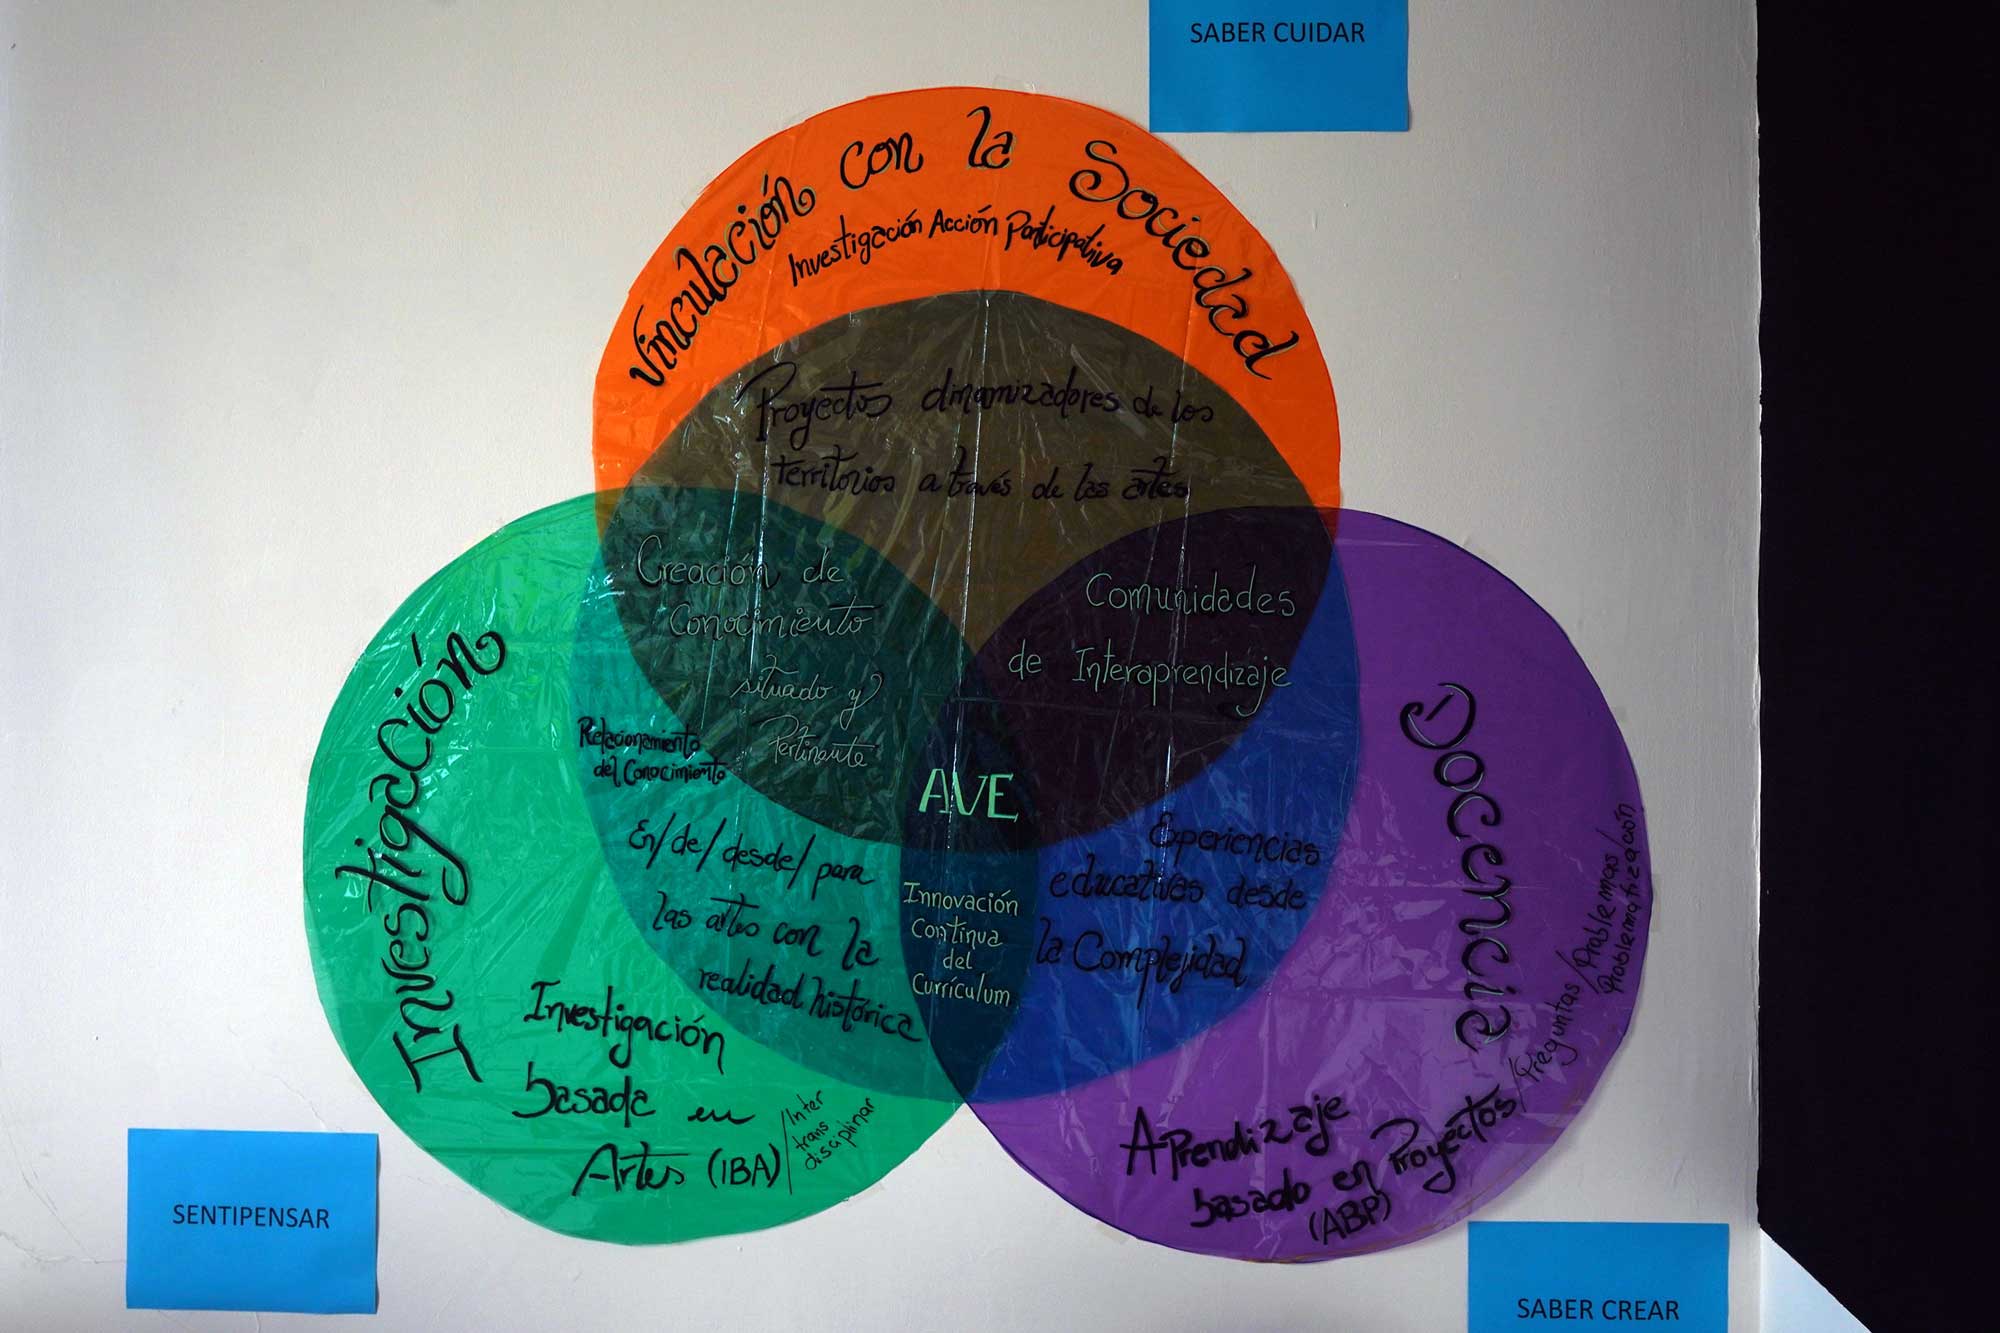 SABER CUIDAR
Vinculación con la Sociedad
Investigación Acción Participativa
Proyectos dinamizadores de los
territorios a través de las artes
Creación de
Conocimiento
situado y
Pertinente
Comunidades
de Interaprendizaje
Investigación
Relacionamiento
del Conocimiento
En/de/desde/para
las artes con la
realidad histórica
AVE
Innovación
Contínua
del
Currículum
Experiencias
educativas desde
la Complejidad
Docencia
Investigación
basada en
Artes (IBA)/Inter
trans
disciplinar
Aprendizaje
basado en Proyectos/Preguntas/Problemas
Problematización
(ABP)
SENTIPENSAR
SABER CREAR